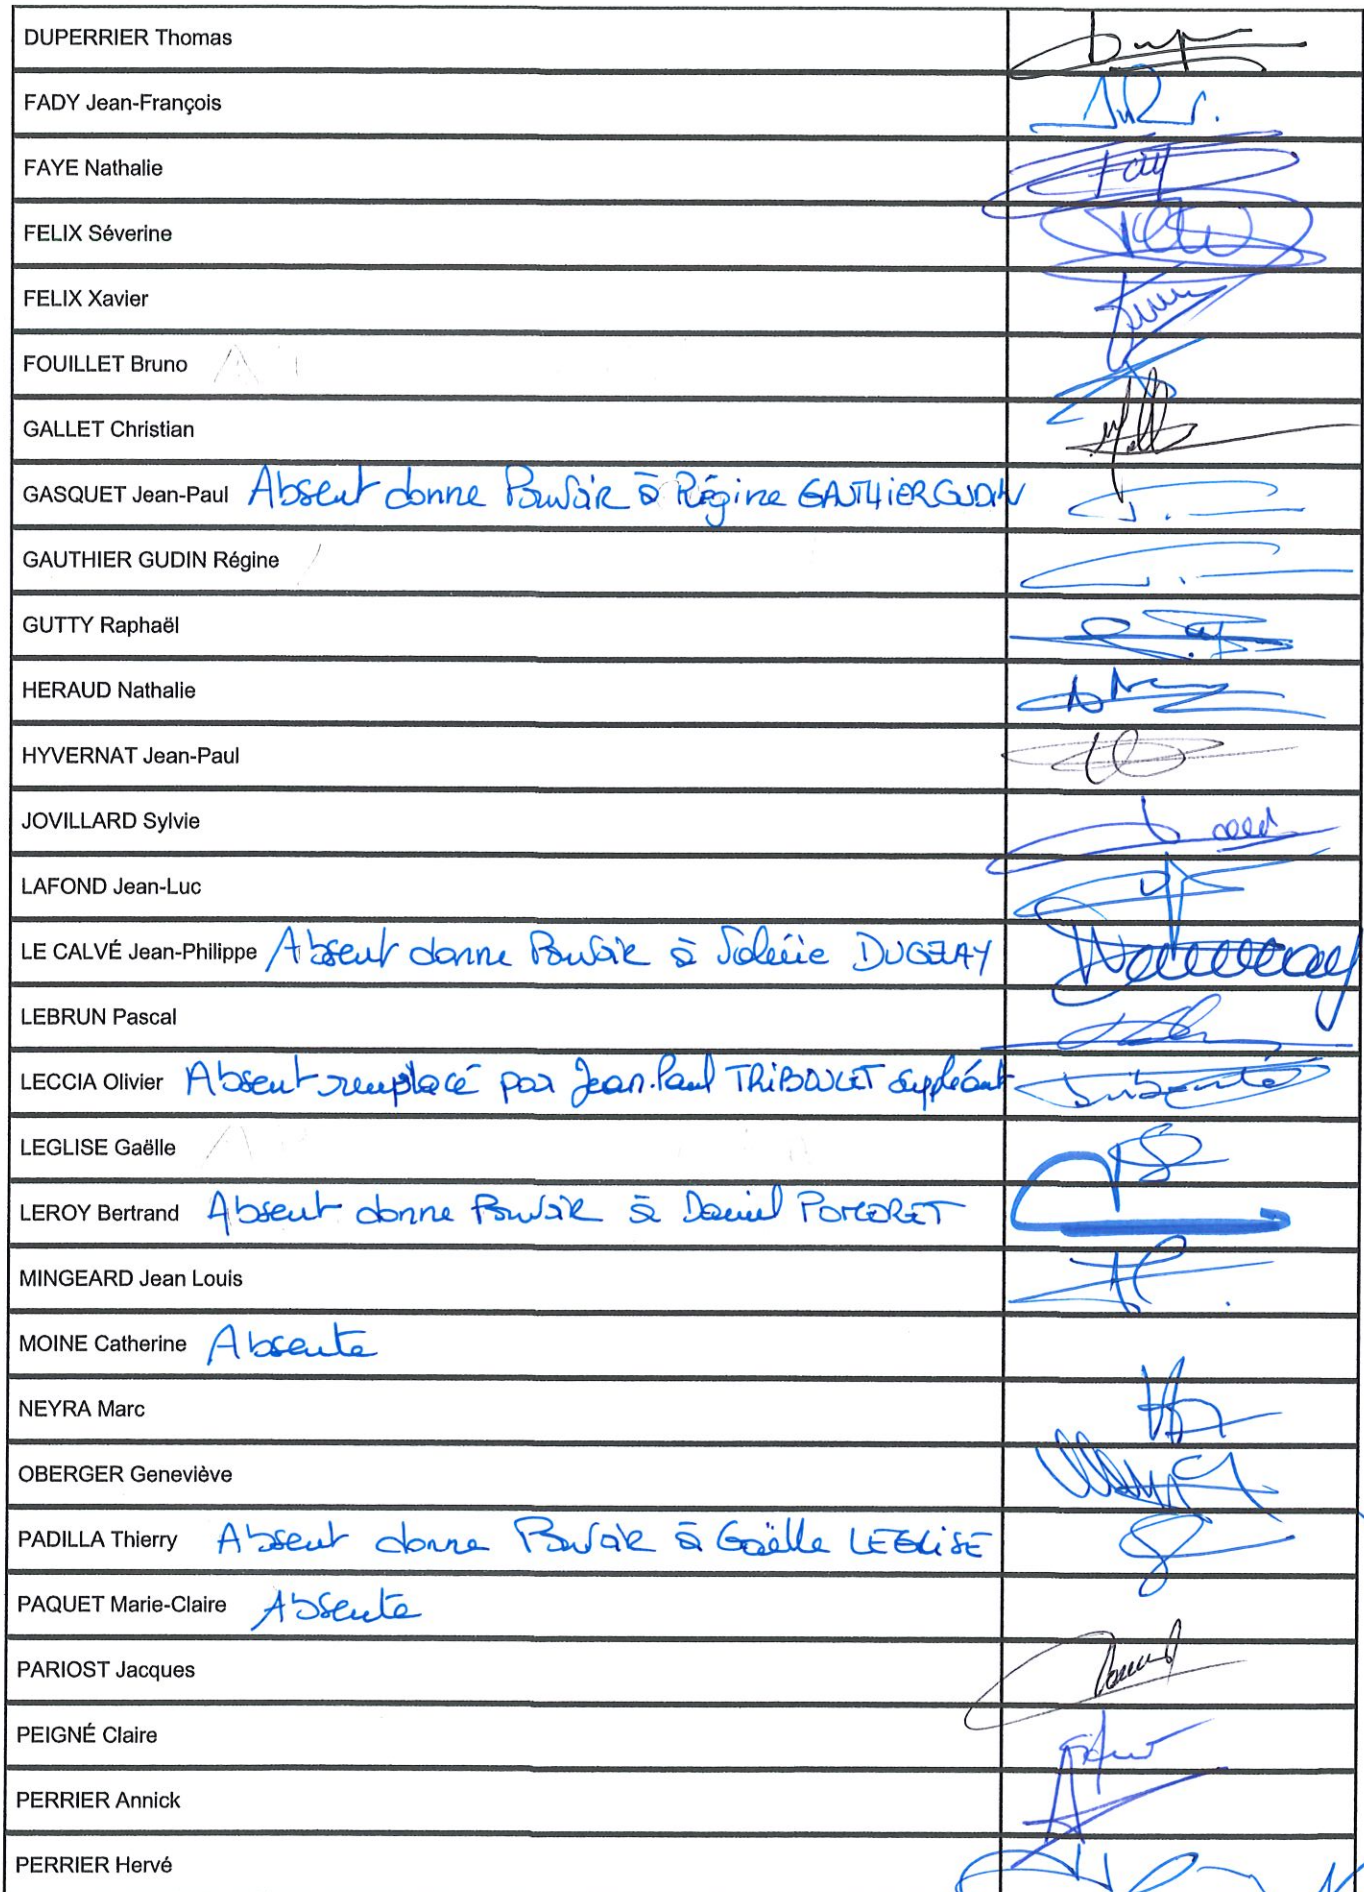 DUPERRIER Thomas
FADY Jean-François
FAYE Nathalie
FELIX Séverine
FELIX Xavier
FOUILLET Bruno
GALLET Christian
GASQUET Jean-Paul Absent donne Pouvoir à Régine GAUTHIER GUDIN
GAUTHIER GUDIN Régine
GUTTY Raphaël
HERAUD Nathalie
HYVERNAT Jean-Paul
JOVILLARD Sylvie
LAFOND Jean-Luc
LE CALVÉ Jean-Philippe Absent donne Pouvoir à DUGELAY
LEBRUN Pascal
LECCIA Olivier Absent remplacé par Jean-Paul THIBOULET suppléant
LEGLISE Gaëlle
LEROY Bertrand Absent donne Pouvoir à Daniel POMERET
MINGEARD Jean Louis
MOINE Catherine Absente
NEYRA Marc
OBERGER Geneviève
PADILLA Thierry Absent donne Pouvoir à Gaëlle LEGLISE
PAQUET Marie-Claire Absente
PARIOST Jacques
PEIGNÉ Claire
PERRIER Annick
PERRIER Hervé